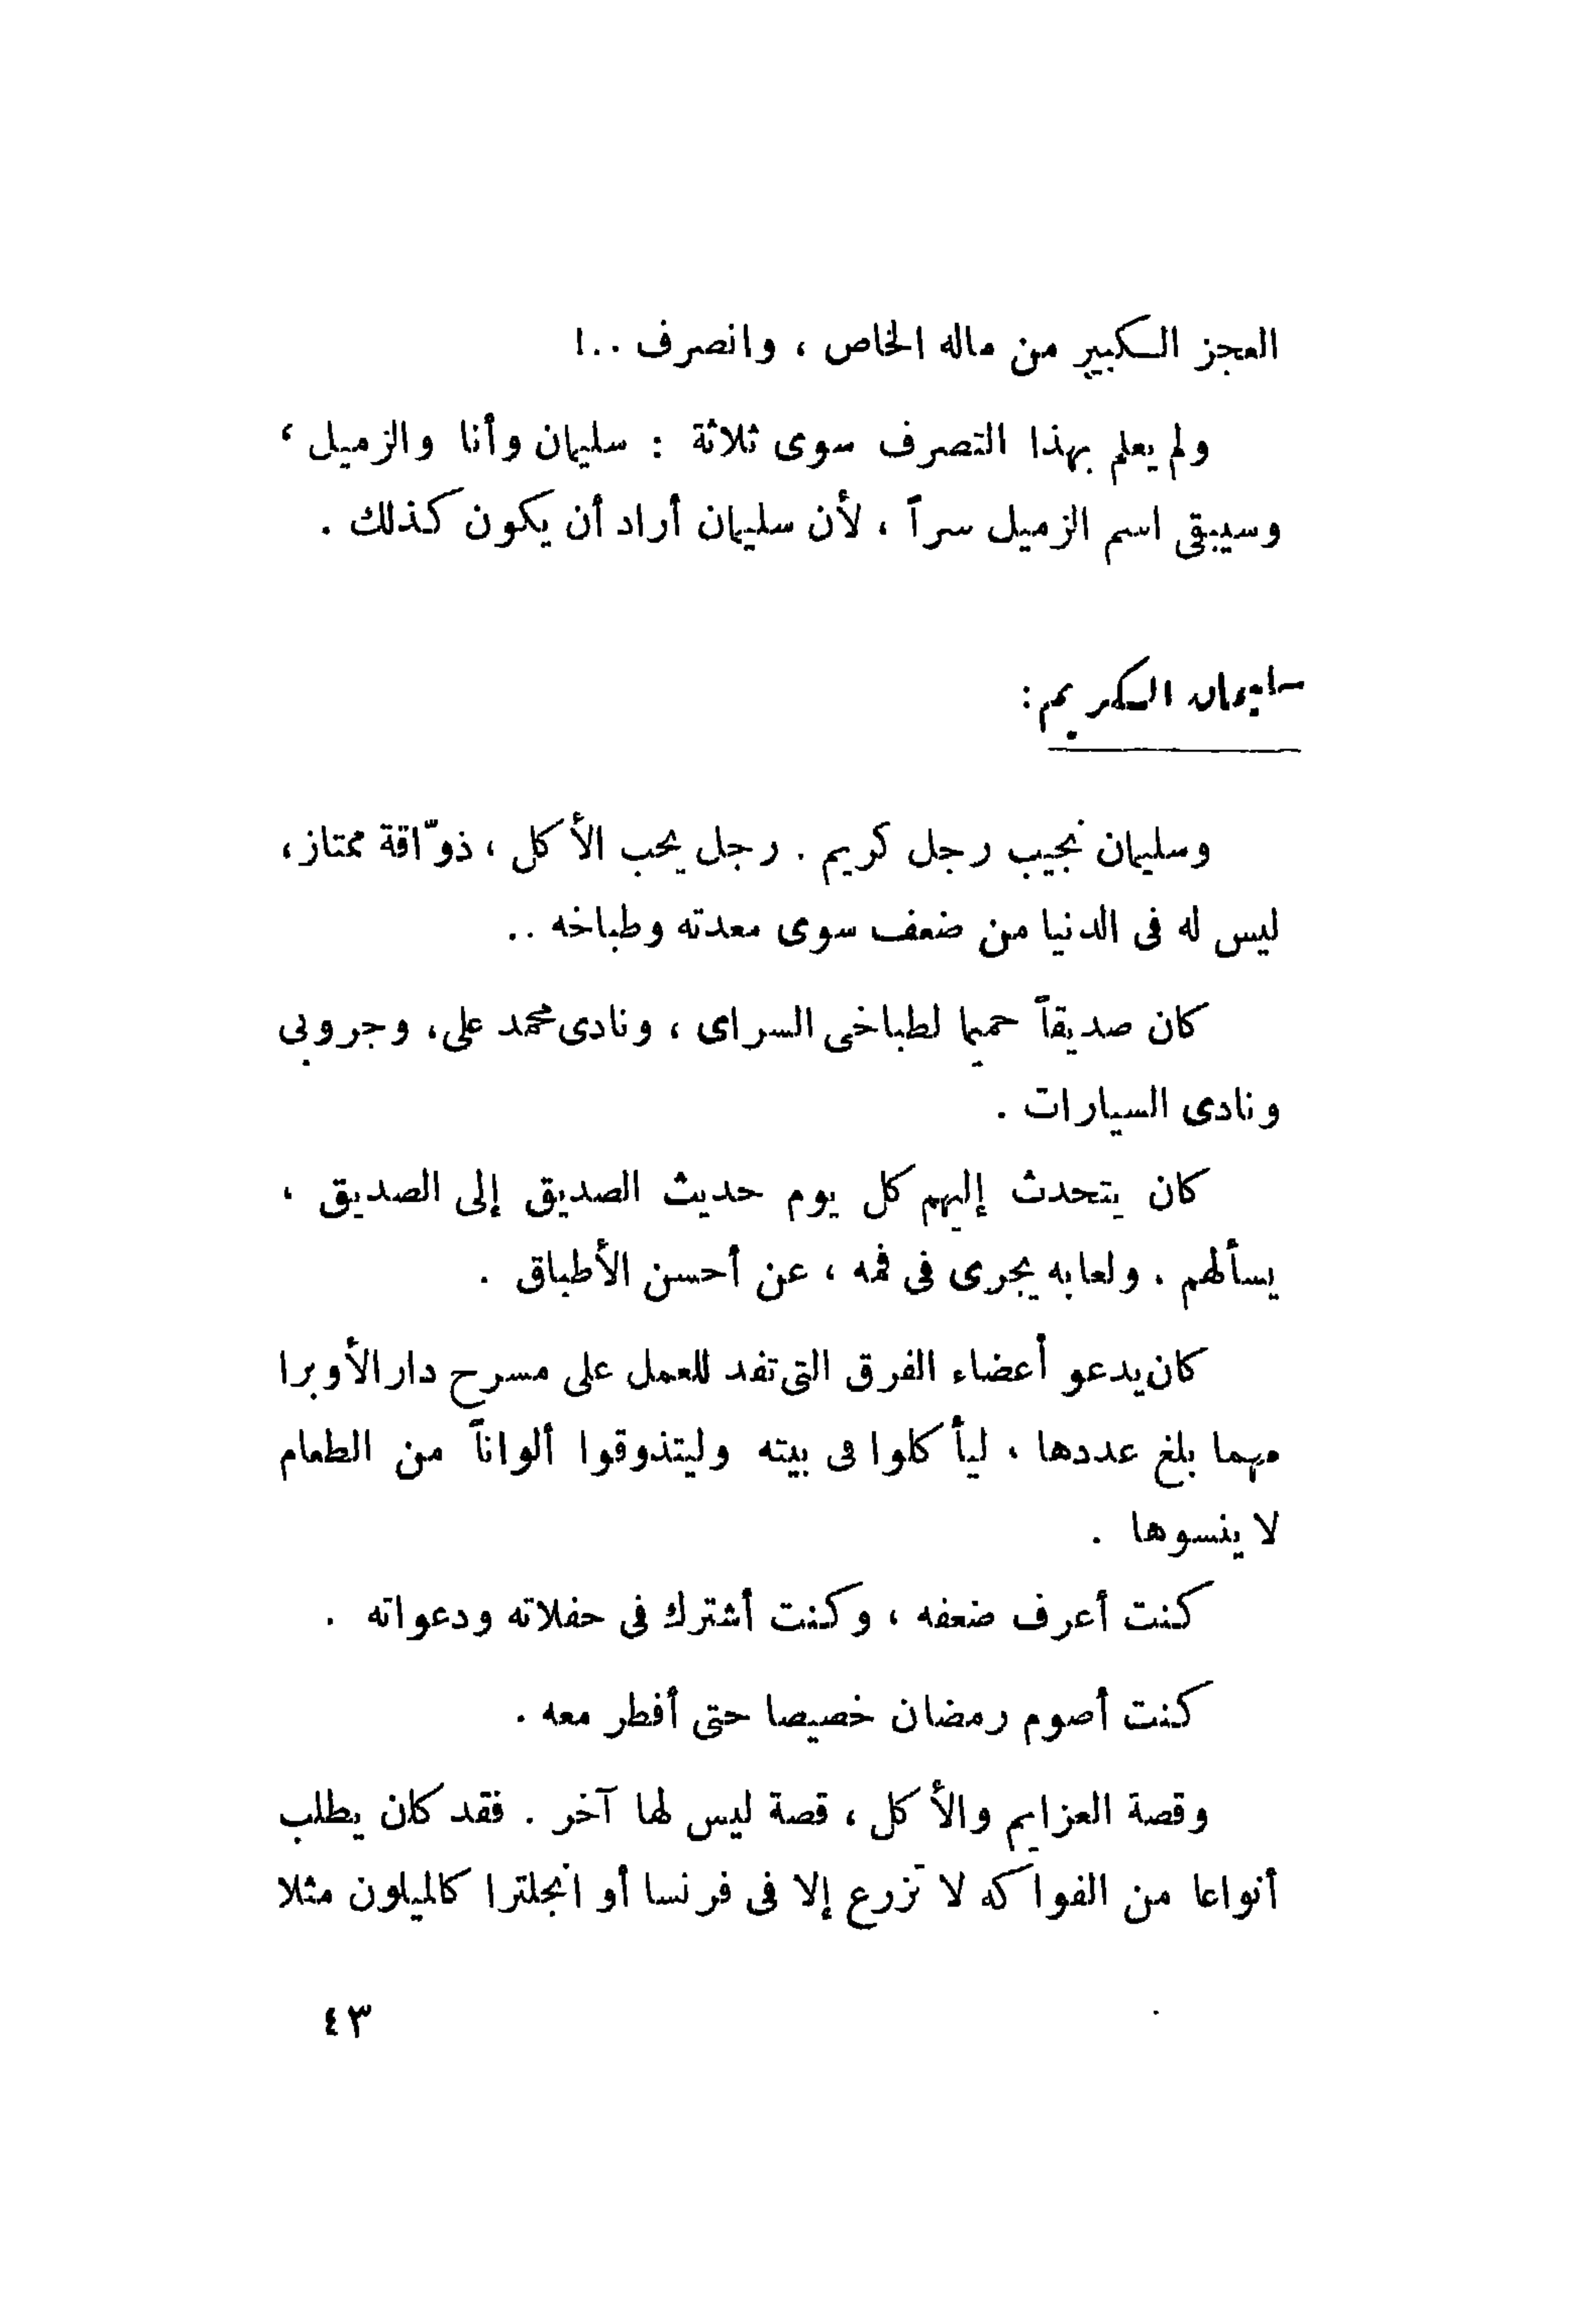 العجز الكبير من ماله الخاص ، وانصرف ..!
ولم يعلم بهذا التصرف سوى ثلاثة : سليمان وأنا والزميل ،
وسيبقى اسم الزميل سراً ، لأن سليمان أراد أن يكون كذلك .
سليمان الكريم :
وسليمان نجيب رجل كريم . رجل يحب الأكل ، ذوّاقة ممتاز ،
ليس له فى الدنيا من ضعف سوى معدته وطباخه ..
كان صديقاً حميما لطباخى السراى ، ونادى محمد على ، وجروبى
ونادى السيارات .
كان يتحدث إليهم كل يوم حديث الصديق إلى الصديق ،
يسألهم . ولعابه يجرى فى فمه ، عن أحسن الأطباق .
كان يدعو أعضاء الفرق التى تفد للعمل على مسرح دار الأوبرا
مهما بلغ عددها ، ليأكلوا فى بيته وليتذوقوا ألواناً من الطعام
لا ينسوها .
كنت أعرف ضعفه ، وكنت أشترك فى حفلاته ودعواته .
كنت أصوم رمضان خصيصا حتى أفطر معه .
وقصة العزايم والأكل ، قصة ليس لها آخر . فقد كان يطلب
أنواعا من الفواكه لا تزرع إلا فى فرنسا أو انجلترا كالميلون مثلا
٤٣